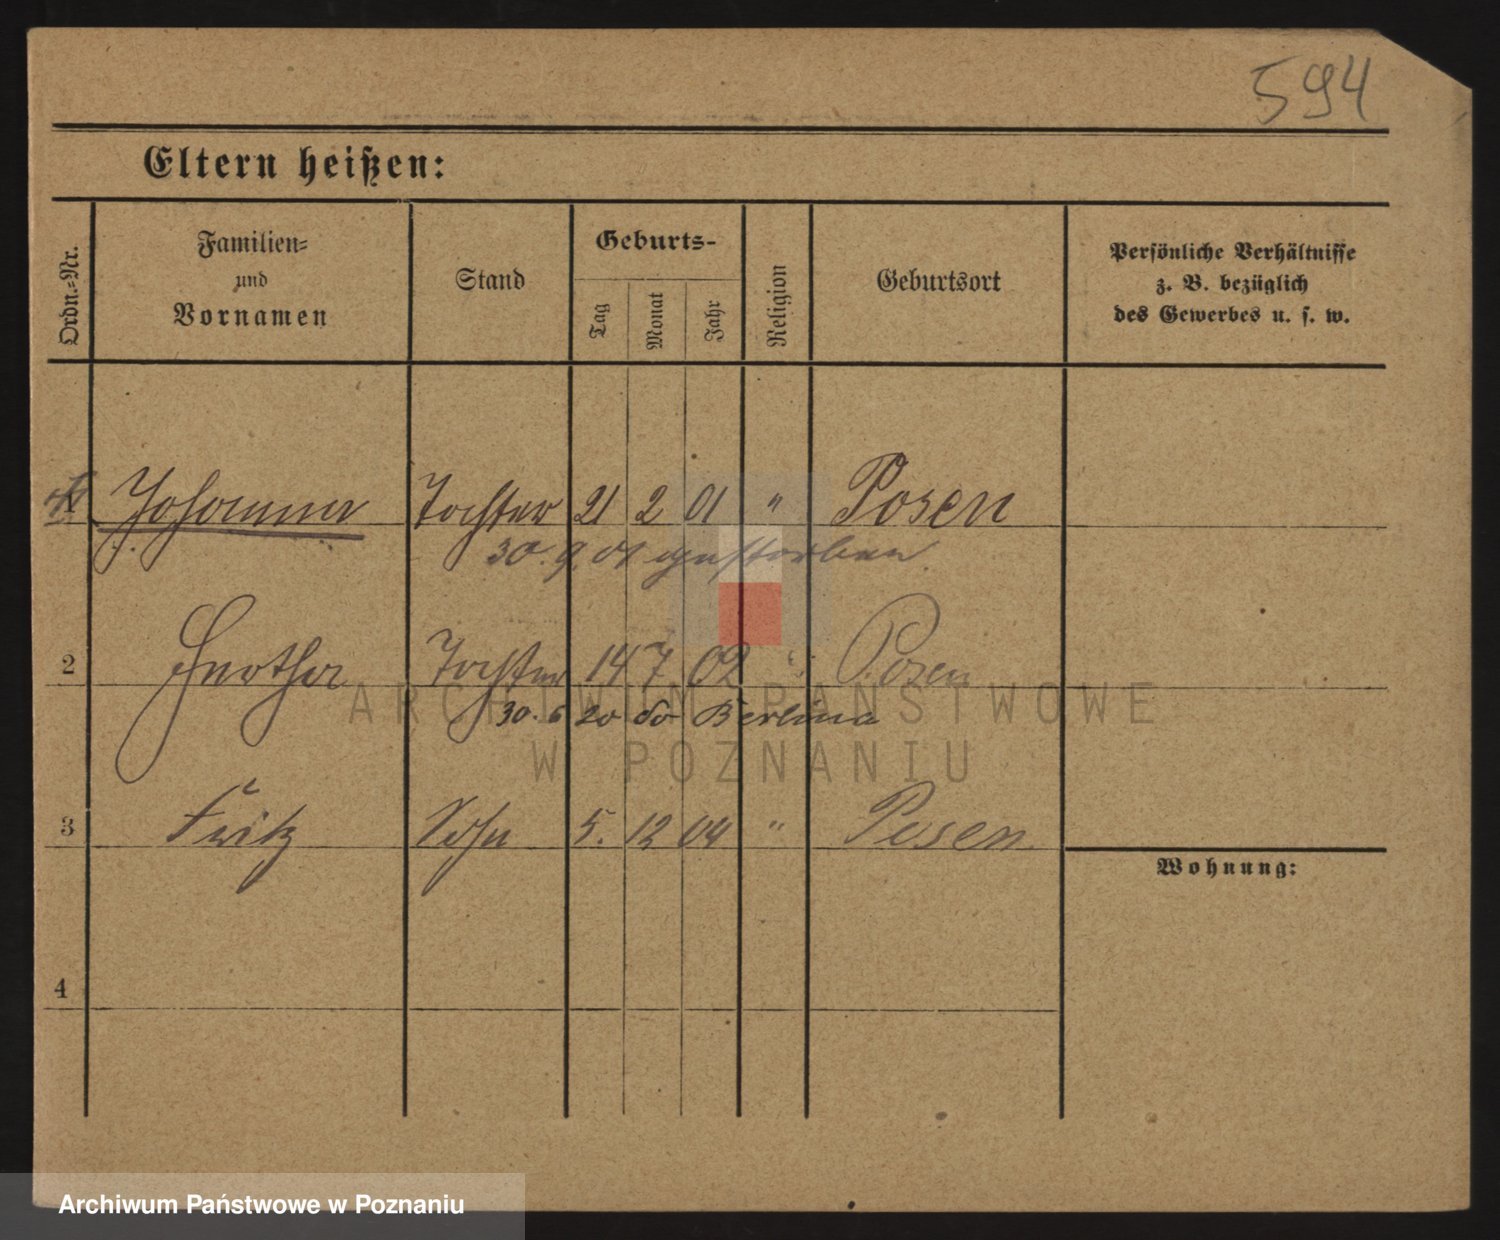 594
Eltern heißen:
Ordn.-Nr.
Familien-
und
Vornamen
Stand
Geburts-
Tag
Monat
Jahr
Religion
Geburtsort
Persönliche Verhältnisse
z. B. bezüglich
des Gewerbes u. s. w.
Johanna Tochter 21 2 01 " Posen
30. 9. 01 gestorben.
2 Tochter 14 7 02 " Posen
30. 6 20 do Berlina
3 Fritz Sohn 5. 12 04 " Posen
Wohnung:
4
ARCHIWUM PAŃSTWOWE
W POZNANIU
Archiwum Państwowe w Poznaniu